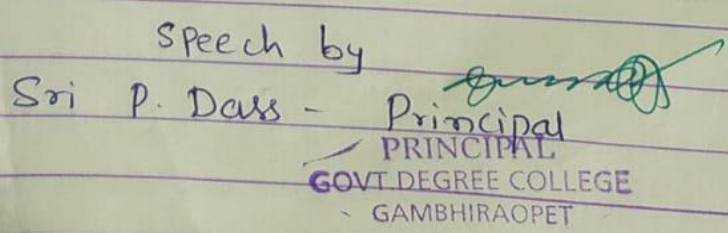 Speech by
Sri P. Dass - Principal
PRINCIPAL
GOVT.DEGREE COLLEGE
GAMBHIRAOPET